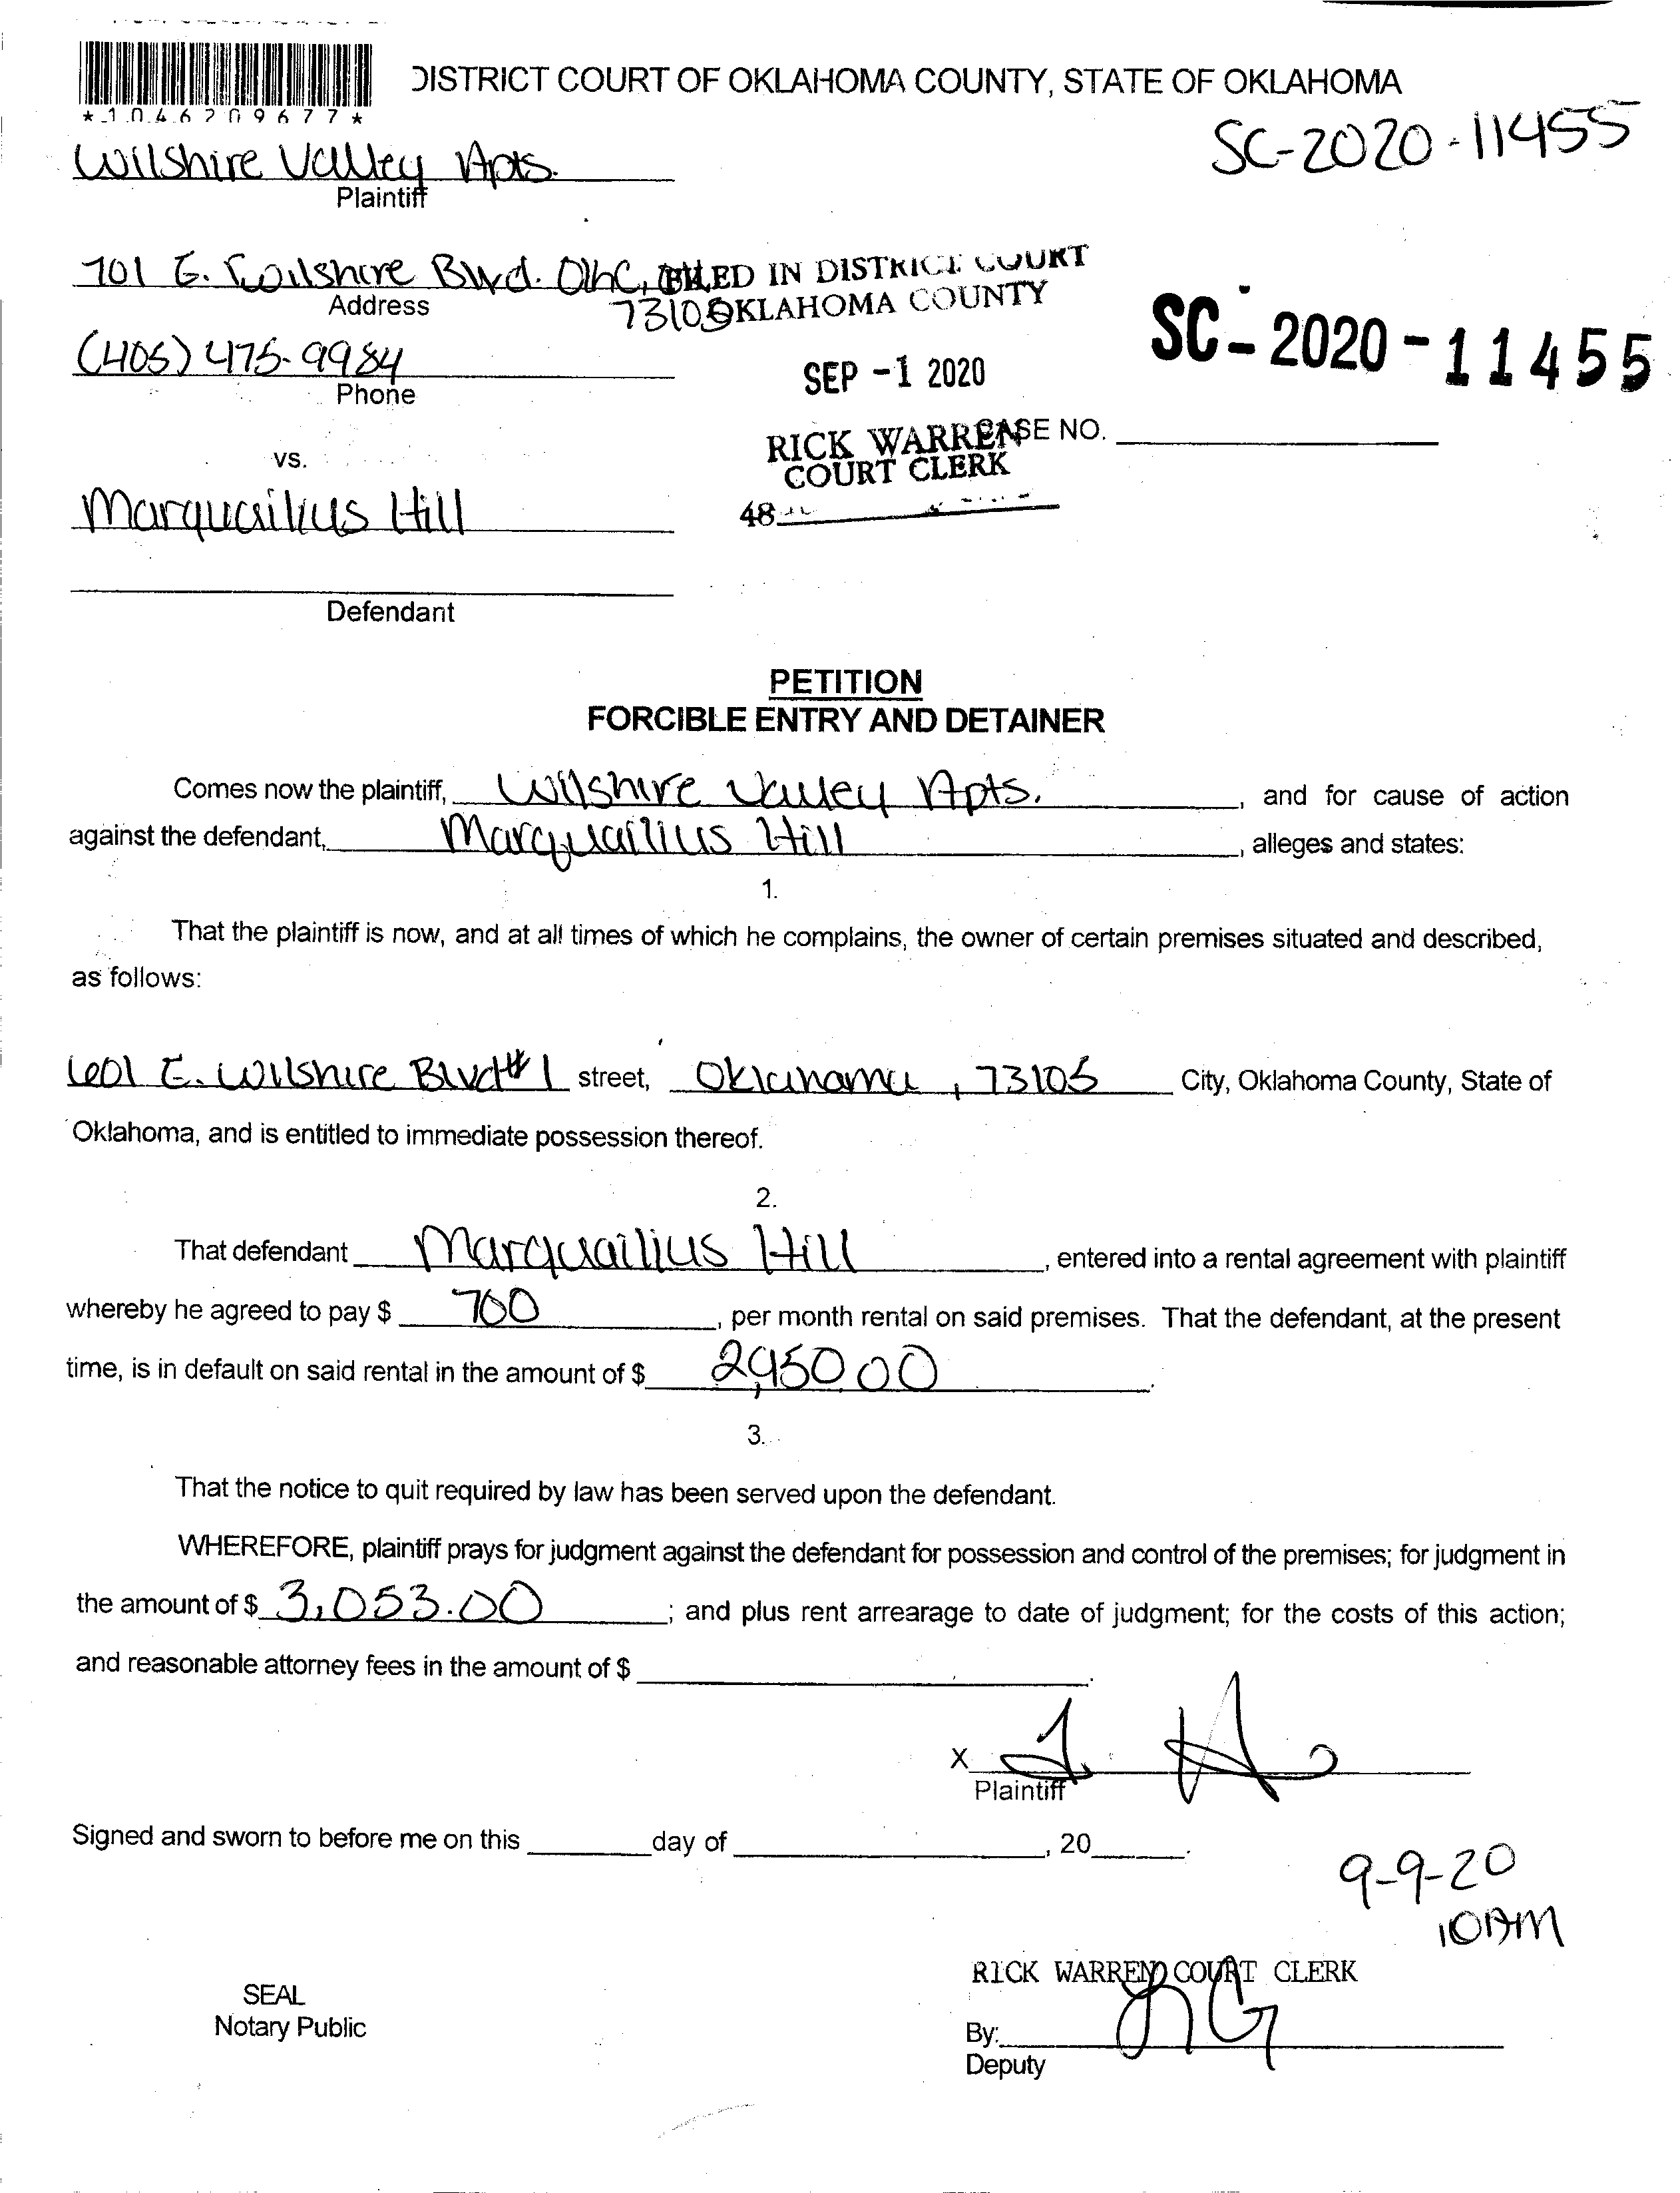 DISTRICT COURT OF OKLAHOMA COUNTY, STATE OF OKLAHOMA
*1046209677*
SC-2020-11455
Wilshire Valley Apts.
Plaintiff
701 E. Wilshire Blvd. OKC, OK
73105
Address
FILED IN DISTRICT COURT
OKLAHOMA COUNTY
SEP -1 2020
SC-2020-11455
(405) 475-9984
Phone
RICK WARREN
COURT CLERK
48
CASE NO.
vs.
Marquailius Hill
Defendant
PETITION
FORCIBLE ENTRY AND DETAINER
Comes now the plaintiff, Wilshire Valley Apts., and for cause of action
against the defendant, Marquailius Hill, alleges and states:
1.
That the plaintiff is now, and at all times of which he complains, the owner of certain premises situated and described,
as follows:
601 E. Wilshire Blvd #1 street, Oklahoma, 73105 City, Oklahoma County, State of
Oklahoma, and is entitled to immediate possession thereof.
2.
That defendant Marquailius Hill, entered into a rental agreement with plaintiff
whereby he agreed to pay $ 700, per month rental on said premises. That the defendant, at the present
time, is in default on said rental in the amount of $ 2,950.00.
3.
That the notice to quit required by law has been served upon the defendant.
WHEREFORE, plaintiff prays for judgment against the defendant for possession and control of the premises; for judgment in
the amount of $ 3,053.00; and plus rent arrearage to date of judgment; for the costs of this action;
and reasonable attorney fees in the amount of $ .
X
Plaintiff
Signed and sworn to before me on this day of , 20 .
9-9-20
10AM
RICK WARREN COURT CLERK
SEAL
Notary Public
By:
Deputy